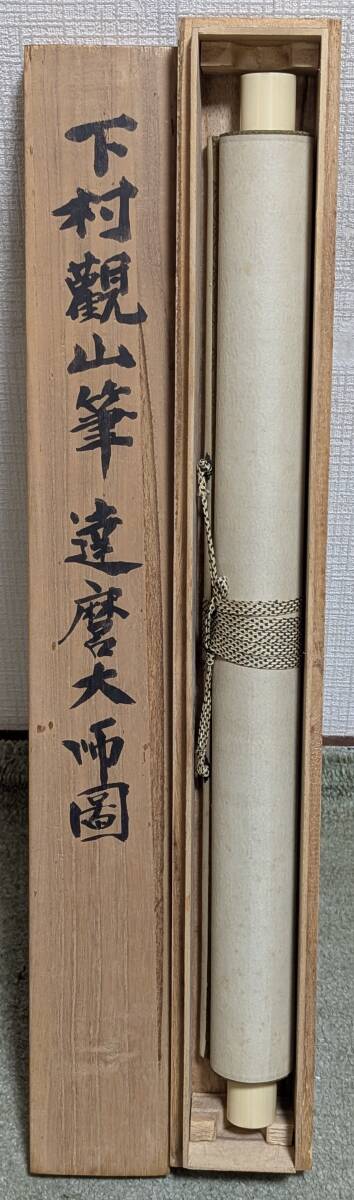 下村觀山筆 達磨大師圖